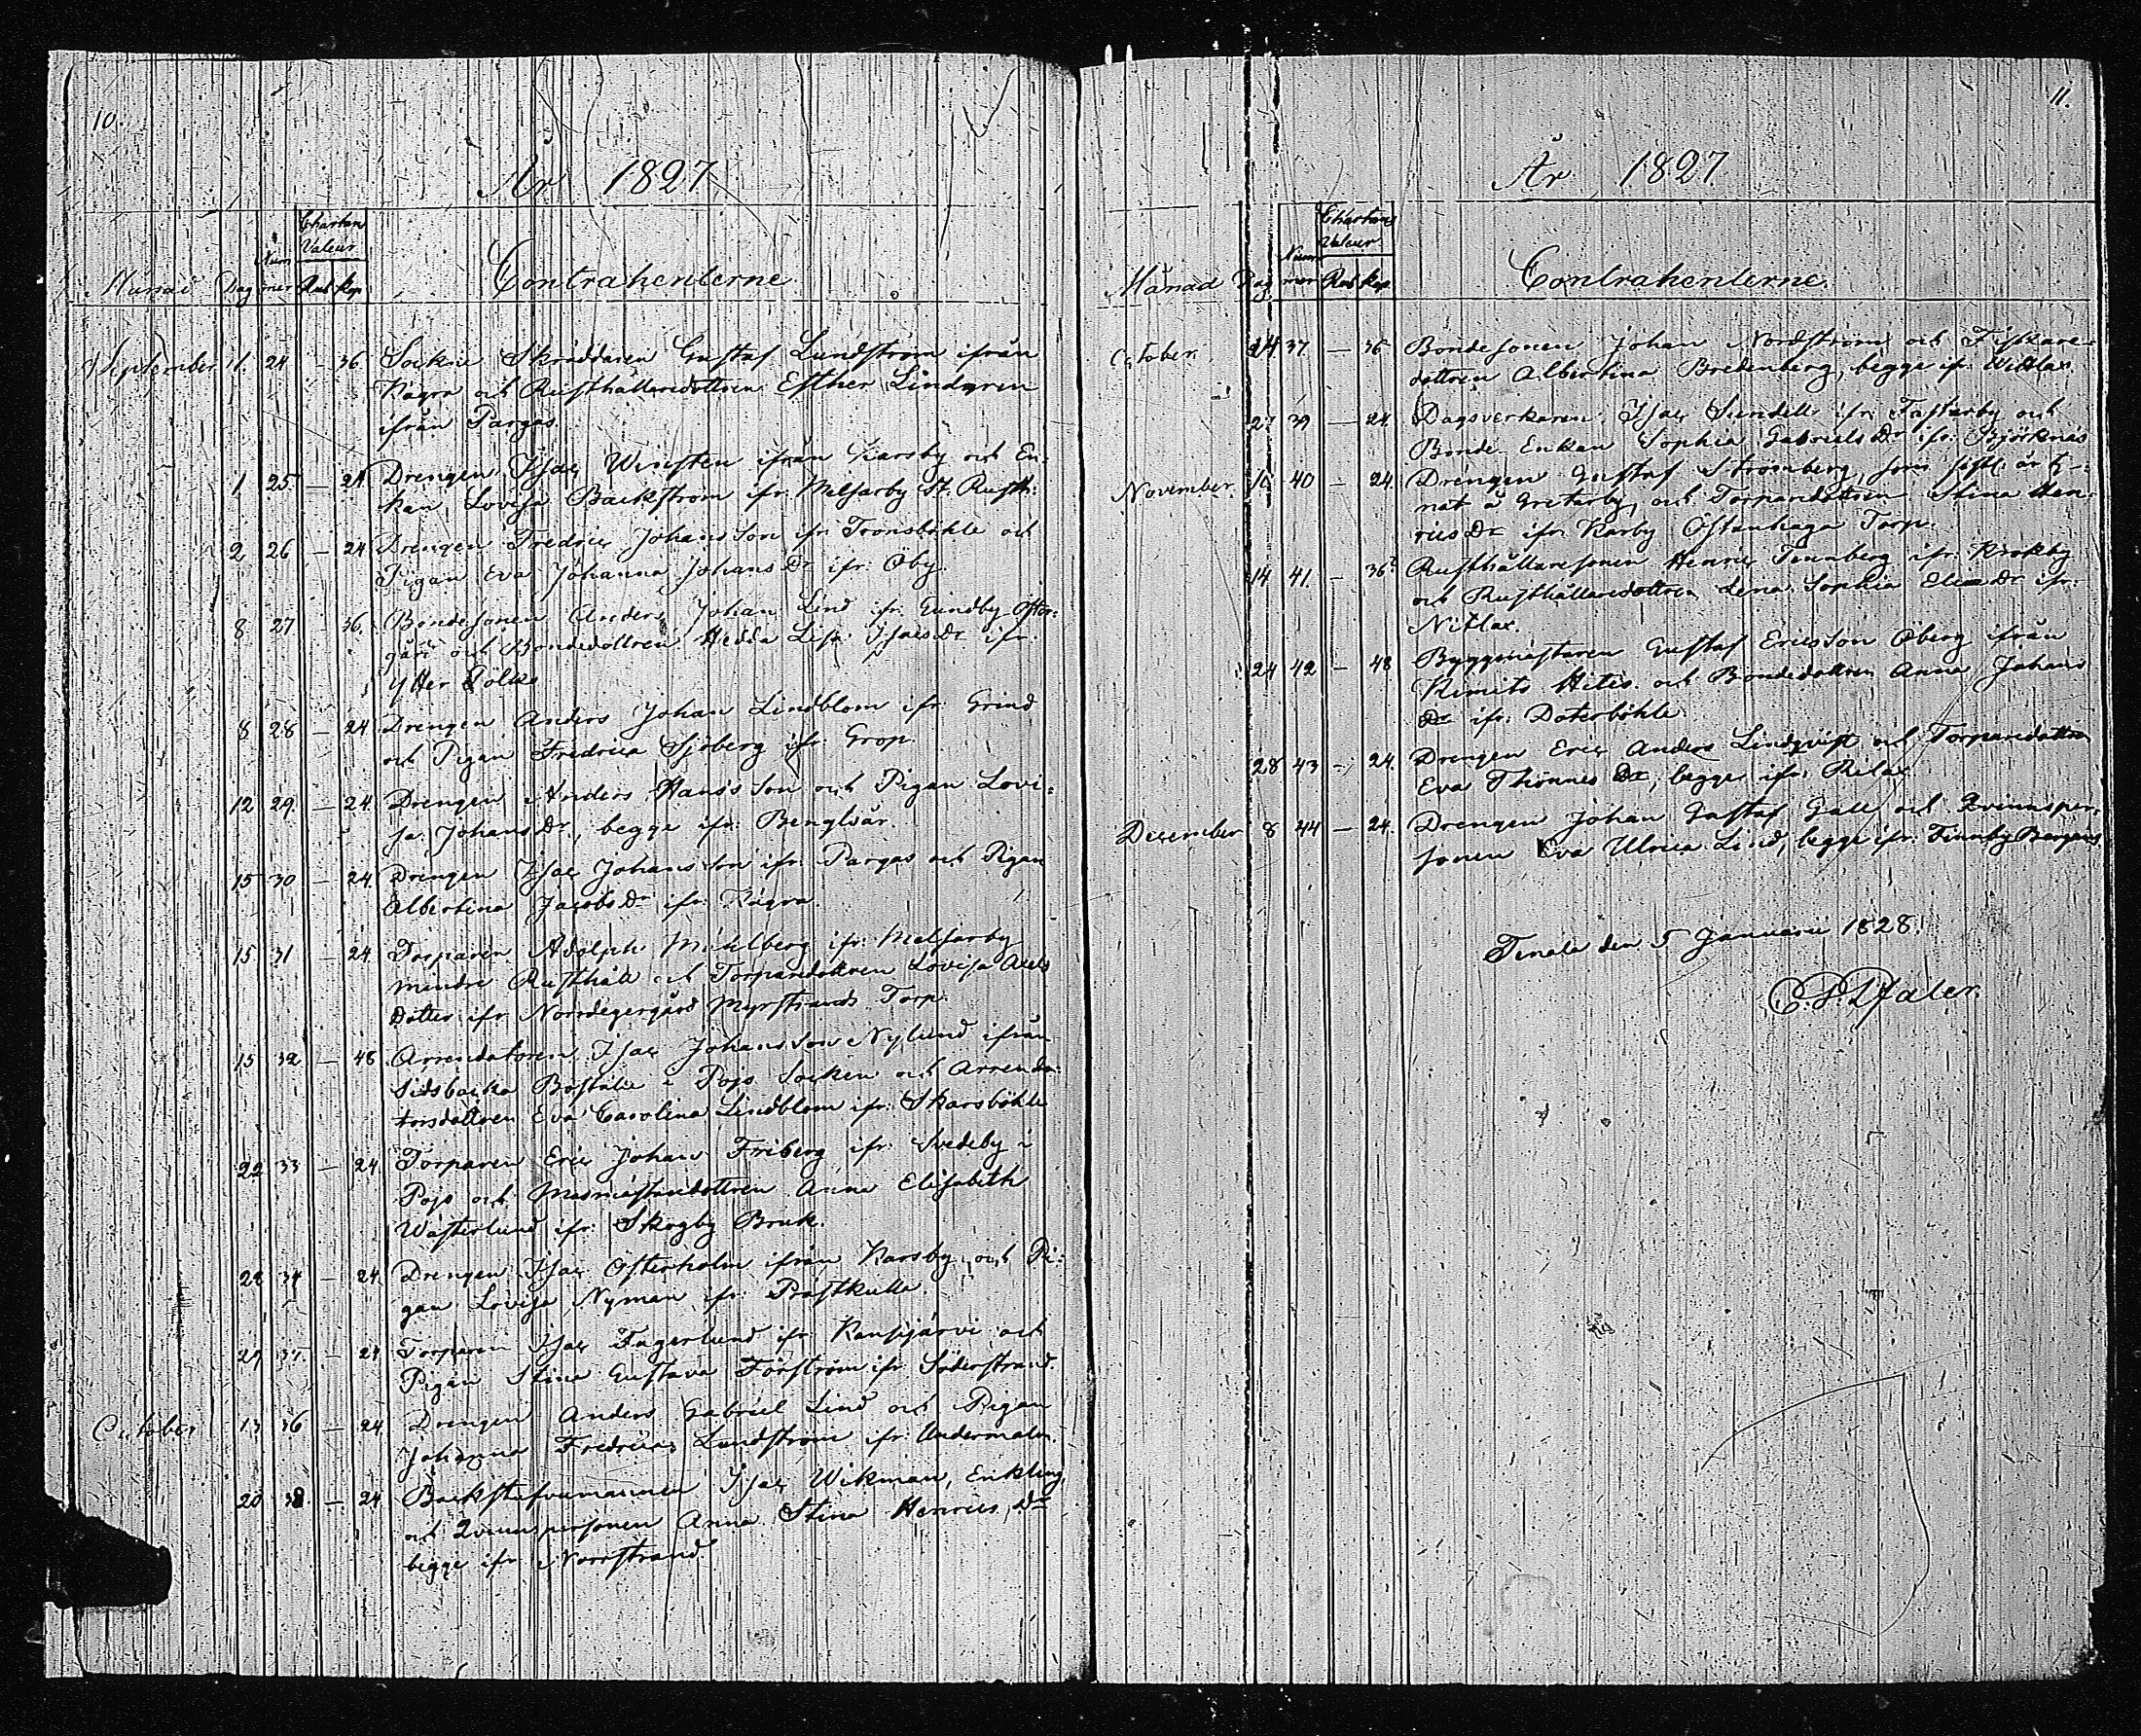 10.
År 1827
Månad Dag Num mer Chartan Valeur Rub Kop.
Contrahenterne
September 11. 24 – 36 Sockne Skräddaren Gustaf Lundström ifrån
Rågra och Rusthållaredottren Esther Lindgren
ifrån Pargas
1 25 – 24 Drengen Isac Winsten ifrån Karsby och En:
kan Lovisa Backström ifr: Melsarby St. Rusth:
2 26 – 24 Drengen Fredric Johans Son ifr: Tronsböhle och
Pigan Eva Johanna Johans Dr ifr: Öby.
8 27 36. Bondesonen Anders Johan Lind ifr: Gundby Öster:
gård och Bondedottren Hedda Lisa Isacs Dr ifr:
Ytter Tölks
8 28 – 24 Drengen Anders Johan Lindblom ifr: Grind
och Pigan Fredrica Sjöberg ifr: Grop.
12 29. – 24. Drengen Anders Hans's Son och Pigan Lovi:
sa Johans Dr, begge ifr: Benglsår.
15 30 – 24. Drengen Isac Johans Son ifr: Pargas och Pigan
Albertina Jacobs Dr ifr: Rågra.
15 31 – 24. Torparen Adolph Mühlberg ifr: Melsarby
mindre Rusthåll och Torparedottren Lovisa Axels
Dotter ifr: Norrdegergård Myrstrands Torp.
15 32 – 48. Arrendatoren Isac Johansson Nylund ifrån
Sidsbacka Boställe i Pojo Socken och Arrenda:
torsdottren Eva Carolina Lindblom ifr: Skarsböhle
22 33 – 24. Torparen Eric Johan Friberg ifr: Svedeby i
Pojo och Masmästaredottren Anna Elisabeth
Wästerlund ifr: Skogby Bruk.
28 34 – 24. Drengen Isac Österholm ifrån Karsby och Pi:
gan Lovisa Nyman ifr: Prästkulla.
29 37. – 24 Torparen Isac Fagerlund ifr: Kansjärvi och
Pigan Stina Gustava Forström ifr: Söderstrand.
October 13 36 – 24 Drengen Anders Gabriel Lind och Pigan
Johanna Fredrica Lundström ifr: Undermalm.
20 38. – 24 Backstufvumannen Isac Wikman, Enkling,
och Qvinnspersonen Anna Stina Henrics Dr
begge ifr: Norrstrand.
11.
År 1827
Månad Dag Num mer Chartans Valeur Rub Kop.
Contrahenterne.
October 24 37 – 36 Bondesonen Johan Nordström och Fiskare:
dottren Albertina Bredenberg, begge ifr: Nitlax.
27 39 – 24. Dagsverkaren Isac Sundell ifr: Tastarby och
Bonde Enkan Sophia Gabriels Dr ifr: Björknäs
November 10 40 – 24. Drengen Gustaf Strömberg, som sistl: år tj:
nat å Gretarby, och Torparedottren Stina Hen:
rics Dr ifr: Karby Östanhaga Torp.
14 41. – 36 Rusthållaresonen Henric Tennberg ifr: Krokby
och Rusthållaredottren Lena Sophia Elias Dr ifr:
Nitlax.
24 42 – 48 Byggmästaren Gustaf Ericsson Öberg ifrån
Kimito Hitis och Bondedottren Anna Johans
Dr ifr: Doterböhle.
28 43 – 24. Drengen Eric Anders Lindqvist och Torparedottren
Eva Thomes Dr, begge ifr: Rilax
December 8 44 – 24. Drengen Johan Gustaf Gall och Qvinnsper:
sonen Eva Ulrica Lind, begge ifr: Finnby Bergans.
Tenala den 5 Januarii 1828.
C. P. Pfaler.